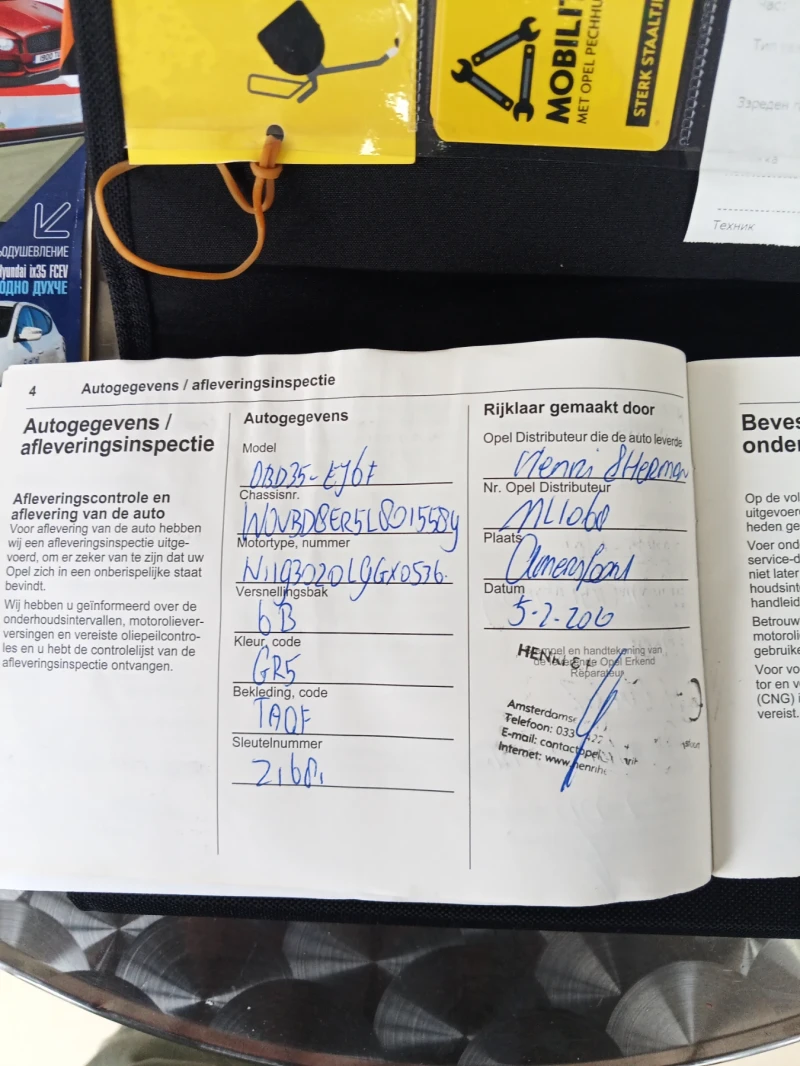 MOBILIT
MET OPEL PECHHU
STERK STAALTJ
Час:
Тип
Зареден
Техник
ОДУШЕВЛЕНИЕ
Hyundai ix35 FCEV
ОДНО ДУХЧЕ
4 Autogegevens / afleveringsinspectie
Autogegevens /
afleveringsinspectie
Afleveringscontrole en
aflevering van de auto
Voor aflevering van de auto hebben
wij een afleveringsinspectie uitge-
voerd, om er zeker van te zijn dat uw
Opel zich in een onberispelijke staat
bevindt.
Wij hebben u geïnformeerd over de
onderhoudsintervallen, motoroliever-
versingen en vereiste oliepeilcontro-
les en u hebt de controlelijst van de
afleveringsinspectie ontvangen.
Autogegevens
Model
0BD35-EJ6F
Chassisnr.
W0VBD8ER5L8015584
Motortype, nummer
Versnellingsbak
6B
Kleur, code
GR5
Bekleding, code
TAQF
Sleutelnummer
2168
Rijklaar gemaakt door
Opel Distributeur die de auto leverde
Henri & Herman
Nr. Opel Distributeur
NL1060
Plaats
Amersfoort
Datum
Stempel en handtekening van
de leverende Opel Erkend
Reparateur
HENRI &
Amsterdamse
Telefoon: 033
E-mail: contactopel
Internet: www.henrihe
Beves
onder
Op de vol
uitgevoerd
heden ge
Voer ond
service-d
niet later
houdsint
handleid
Betrouw
motoroli
gebruike
Voor vo
tor en v
(CNG) i
vereist.